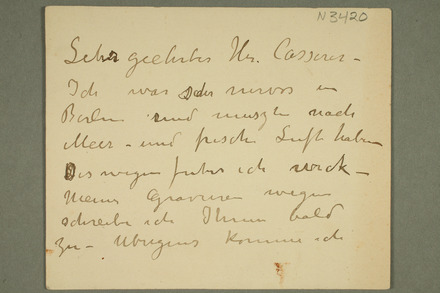 N3420
Sehr geehrter Hr. Cassirer -
Ich war sehr nervös in
Berlin und muszte nach
Meer - und frische Luft haben
Deswegen ich
Meine Gravuren wegen
schreibe ich Ihnen bald
zu - Übrigens komme ich